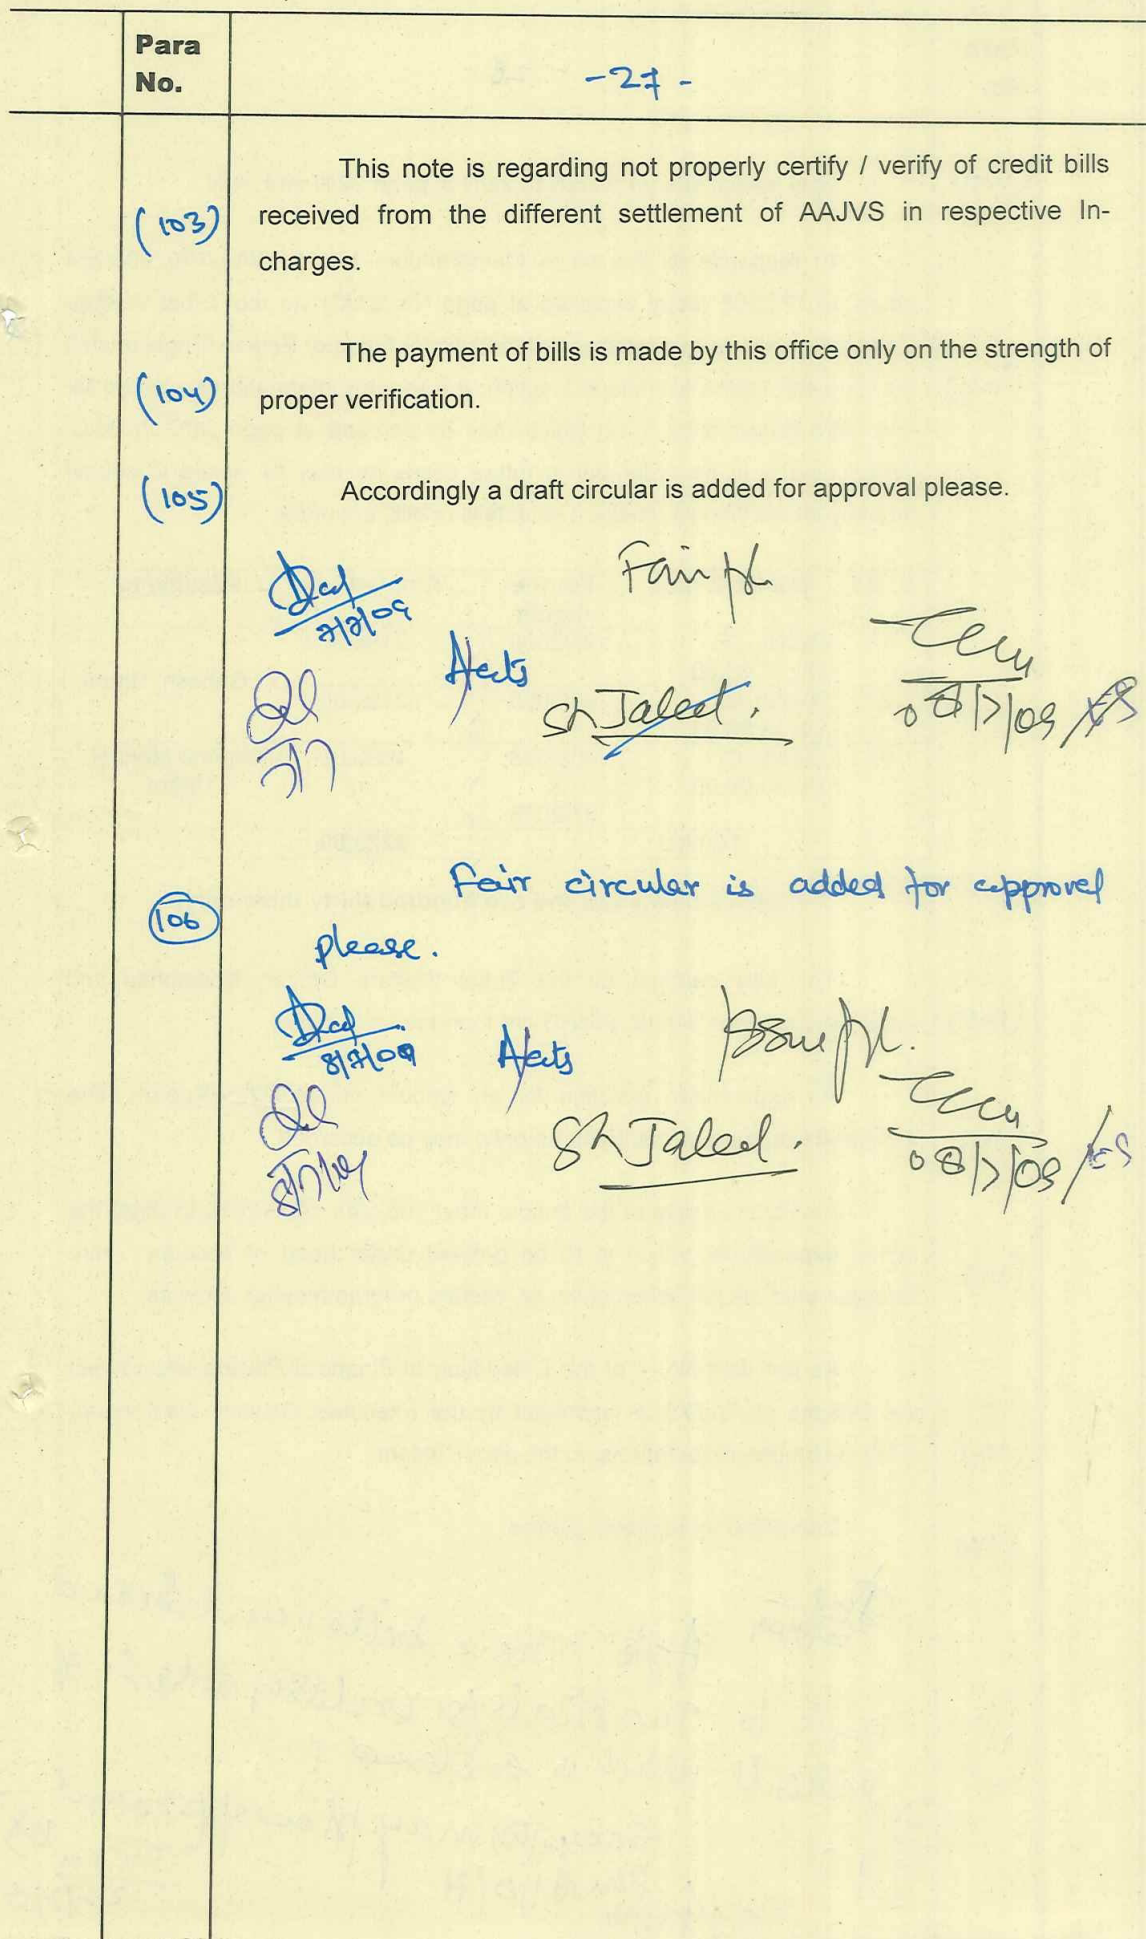 Para
No.
-27-
(103)
This note is regarding not properly certify / verify of credit bills
received from the different settlement of AAJVS in respective In-
charges.
(104)
The payment of bills is made by this office only on the strength of
proper verification.
(105)
Accordingly a draft circular is added for approval please.
Fair pl
7/7/09
Sh Jaled.
08/7/09
7/7
(106)
Fair circular is added for approval
please.
Issue pl.
8/7/09
Sh Jaled.
08/7/09
8/7/09